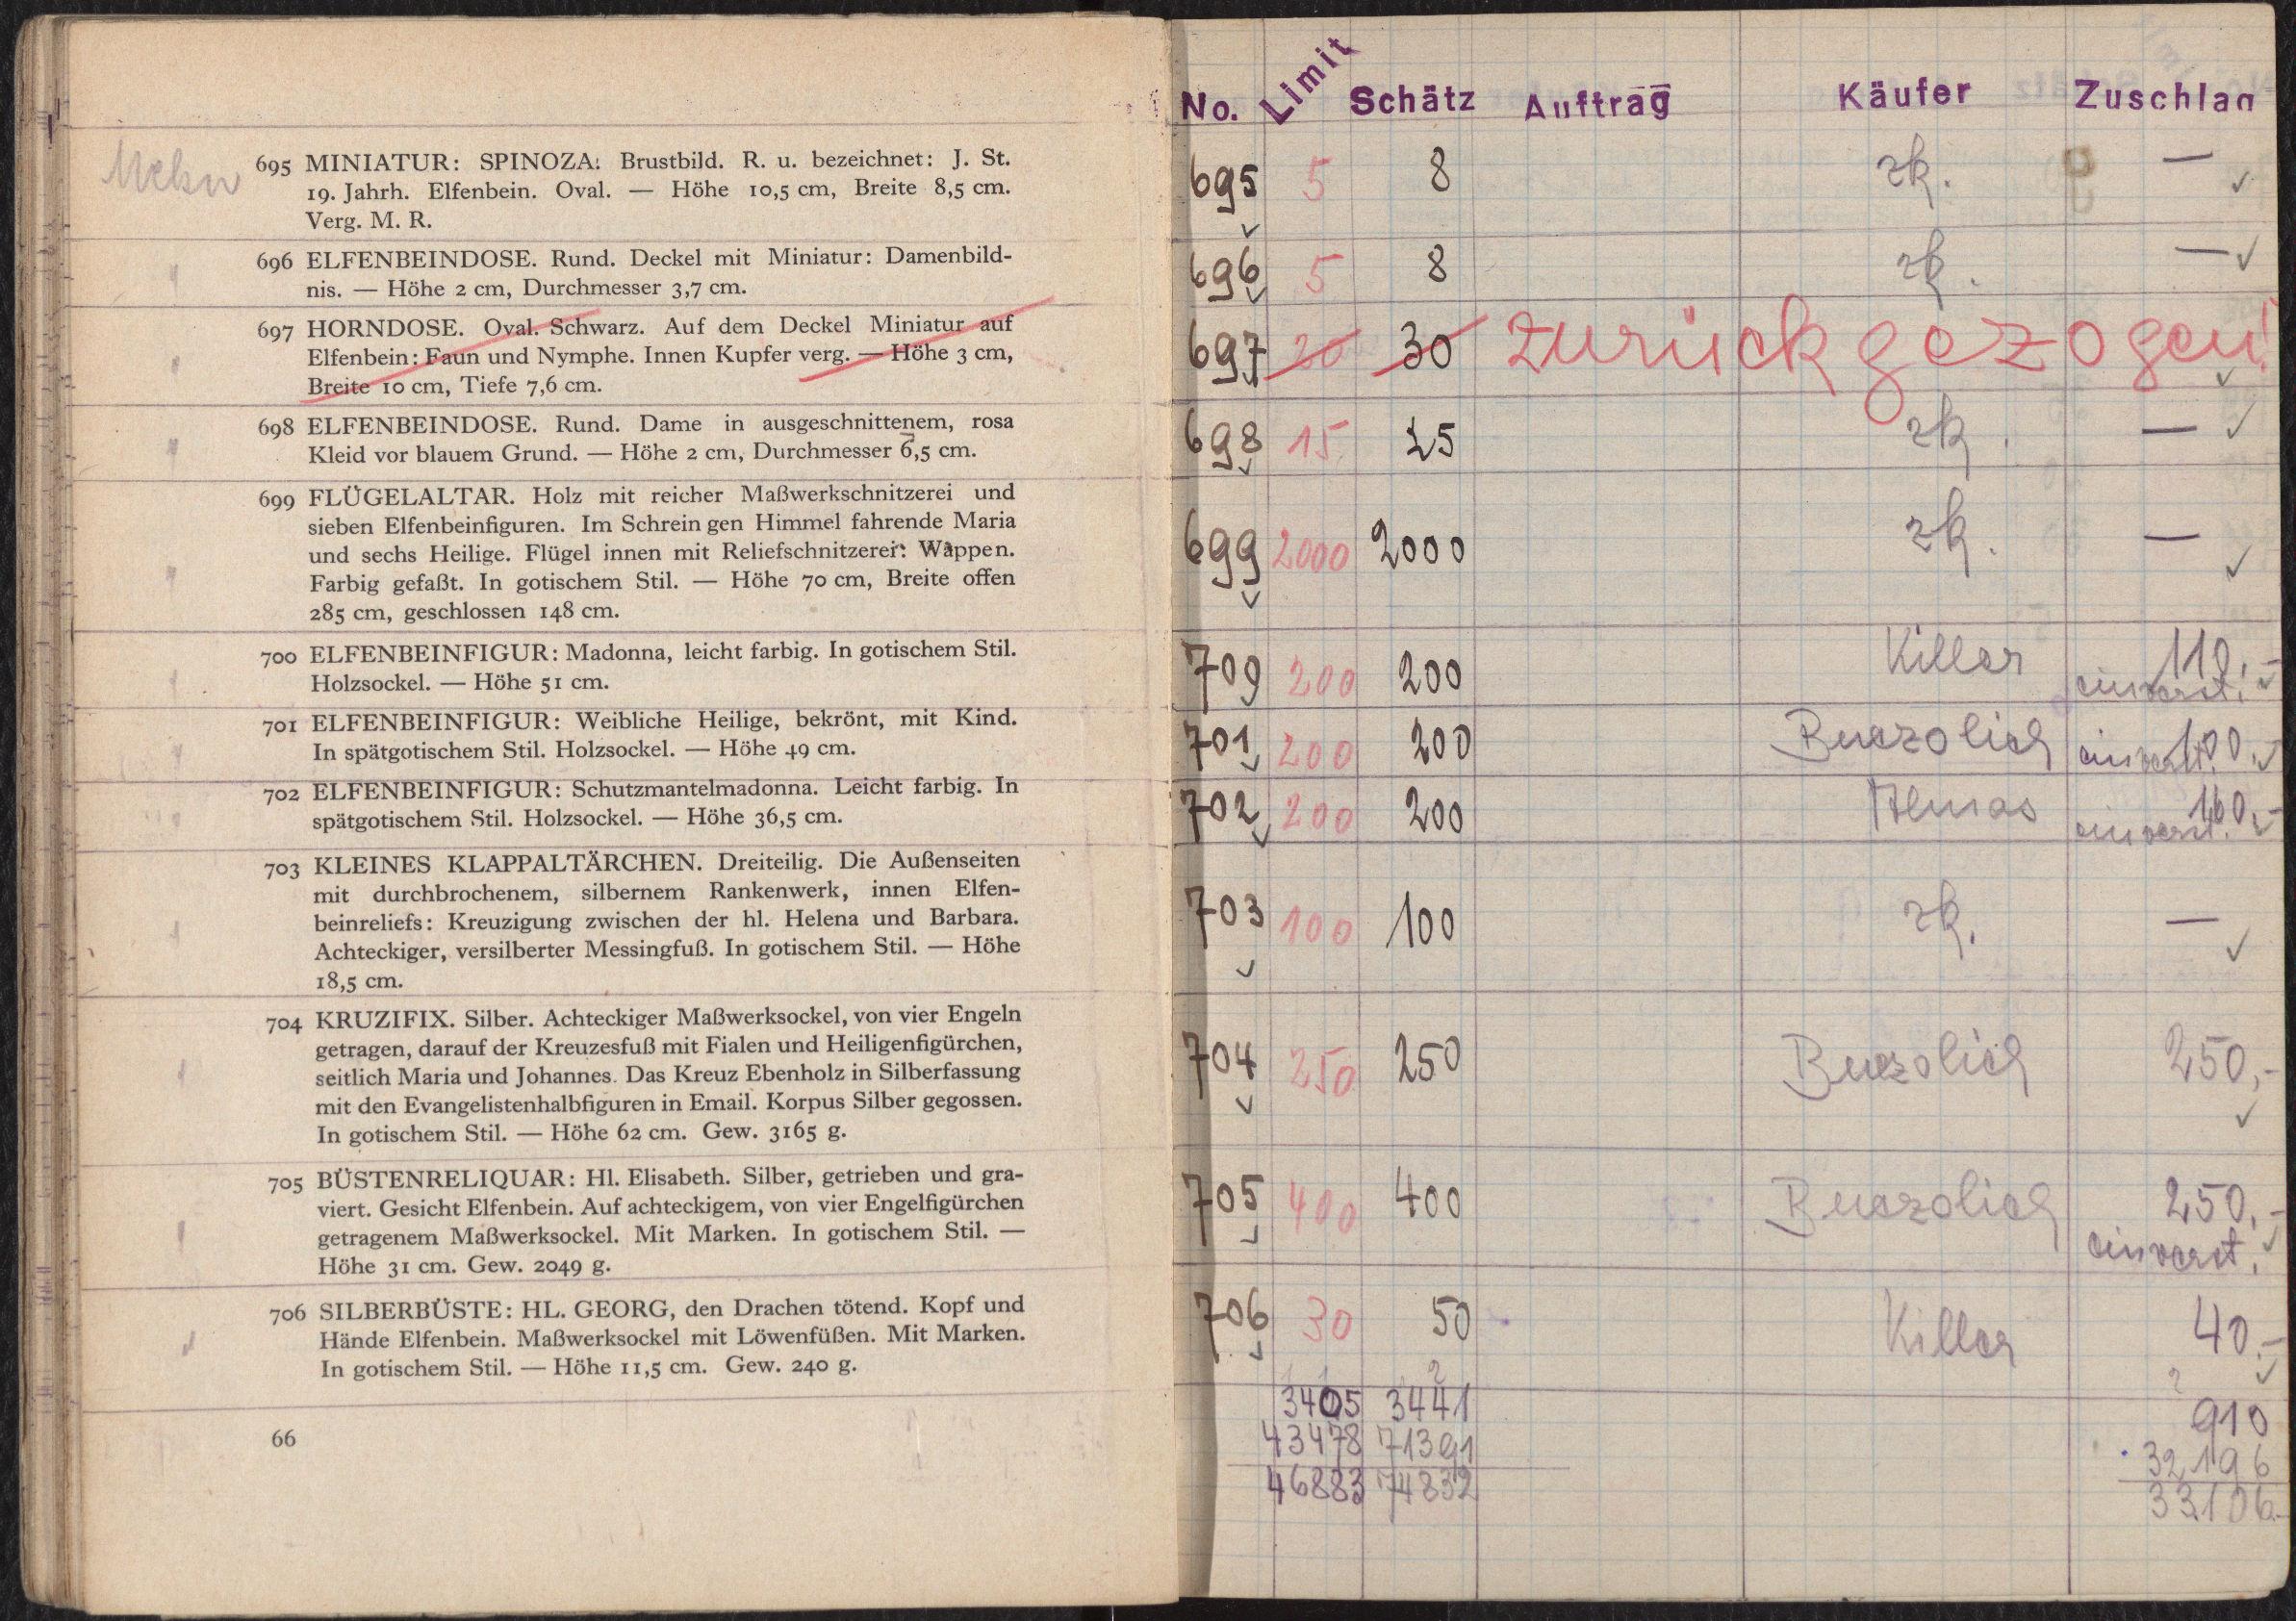 695 MINIATUR: SPINOZA. Brustbild. R. u. bezeichnet: J. St.
19. Jahrh. Elfenbein. Oval. — Höhe 10,5 cm, Breite 8,5 cm.
Verg. M. R.
696 ELFENBEINDOSE. Rund. Deckel mit Miniatur: Damenbild-
nis. — Höhe 2 cm, Durchmesser 3,7 cm.
697 HORNDOSE. Oval. Schwarz. Auf dem Deckel Miniatur auf
Elfenbein: Faun und Nymphe. Innen Kupfer verg. — Höhe 3 cm,
Breite 10 cm, Tiefe 7,6 cm.
698 ELFENBEINDOSE. Rund. Dame in ausgeschnittenem, rosa
Kleid vor blauem Grund. — Höhe 2 cm, Durchmesser 6,5 cm.
699 FLÜGELALTAR. Holz mit reicher Maßwerkschnitzerei und
sieben Elfenbeinfiguren. Im Schrein gen Himmel fahrende Maria
und sechs Heilige. Flügel innen mit Reliefschnitzerei: Wappen.
Farbig gefaßt. In gotischem Stil. — Höhe 70 cm, Breite offen
285 cm, geschlossen 148 cm.
700 ELFENBEINFIGUR: Madonna, leicht farbig. In gotischem Stil.
Holzsockel. — Höhe 51 cm.
701 ELFENBEINFIGUR: Weibliche Heilige, bekrönt, mit Kind.
In spätgotischem Stil. Holzsockel. — Höhe 49 cm.
702 ELFENBEINFIGUR: Schutzmantelmadonna. Leicht farbig. In
spätgotischem Stil. Holzsockel. — Höhe 36,5 cm.
703 KLEINES KLAPPALTÄRCHEN. Dreiteilig. Die Außenseiten
mit durchbrochenem, silbernem Rankenwerk, innen Elfen-
beinreliefs: Kreuzigung zwischen der hl. Helena und Barbara.
Achteckiger, versilberter Messingfuß. In gotischem Stil. — Höhe
18,5 cm.
704 KRUZIFIX. Silber. Achteckiger Maßwerksockel, von vier Engeln
getragen, darauf der Kreuzesfuß mit Fialen und Heiligenfigürchen,
seitlich Maria und Johannes. Das Kreuz Ebenholz in Silberfassung
mit den Evangelistenhalbfiguren in Email. Korpus Silber gegossen.
In gotischem Stil. — Höhe 62 cm. Gew. 3165 g.
705 BÜSTENRELIQUAR: Hl. Elisabeth. Silber, getrieben und gra-
viert. Gesicht Elfenbein. Auf achteckigem, von vier Engelfigürchen
getragenem Maßwerksockel. Mit Marken. In gotischem Stil. —
Höhe 31 cm. Gew. 2049 g.
706 SILBERBÜSTE: HL. GEORG, den Drachen tötend. Kopf und
Hände Elfenbein. Maßwerksockel mit Löwenfüßen. Mit Marken.
In gotischem Stil. — Höhe 11,5 cm. Gew. 240 g.
66
No. Limit Schätz Auftrag Käufer Zuschlag
695 5 8 zk. —
696 5 8 zk. —
697 20 30 zurückgezogen!
698 15 25 zk. —
699 2000 2000 zk. —
709 200 200 Killer 110.-
einverst.
701 200 200 Buczolich 100.-
einverst.
702 200 200 160.-
einverst.
703 100 100 zk. —
704 250 250 Buczolich 250,-
705 400 400 Buczolich 250.-
einverst.
706 30 50 Killer 40.-
3405 3441 910
43478 71391 32196
46883 74832 33106.-